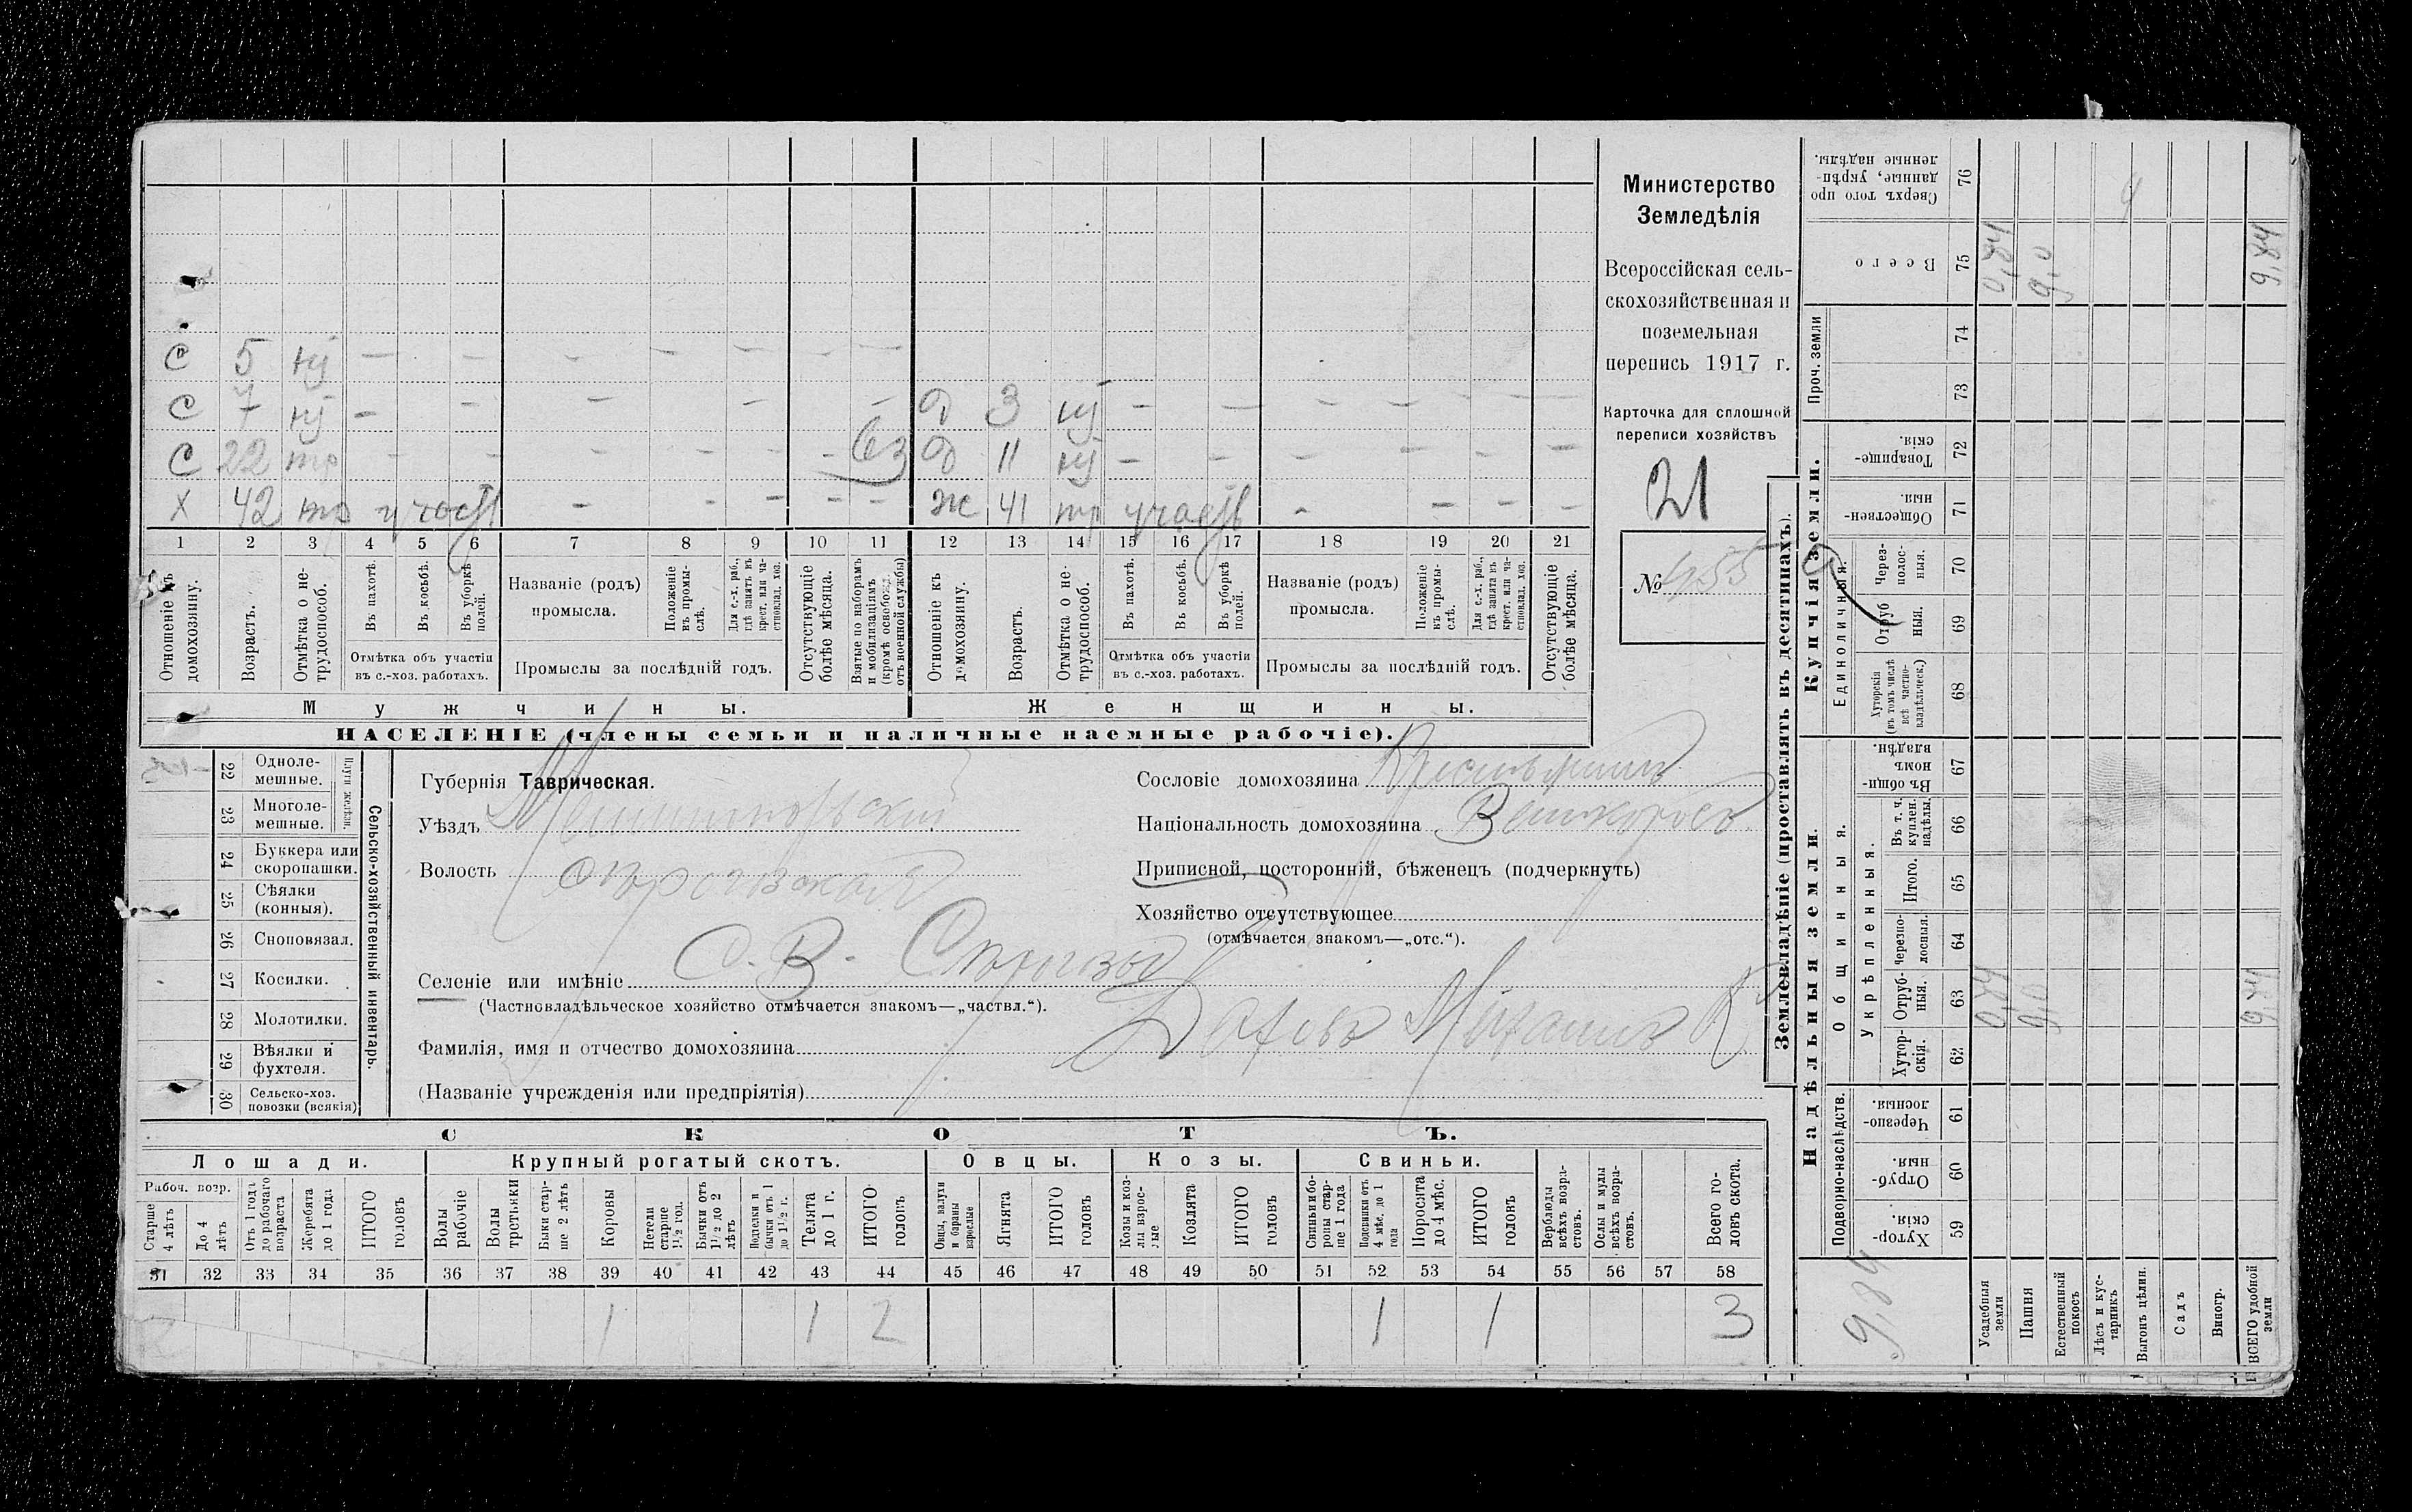 С 5 нт — — — — — — —
С 7 нт — — — — — д 3 нт — — — — — —
С 22 тр — — — — — — вз д 11 нт — — — — — —
Х 42 тр участ — — — — — ж 41 тр участв — — — —
1 2 3 4 5 6 7 8 9 10 11 12 13 14 15 16 17 18 19 20 21
Отношеніе къ домохозяину.
Возрастъ.
Отмѣтка о нетрудоспособ.
Въ пахотѣ.
Въ косьбѣ.
Въ уборкѣ полей.
Отмѣтка объ участіи
въ с.-хоз. работахъ.
Названіе (родъ)
промысла.
Положеніе въ промыслѣ.
Для с.-х. раб., гдѣ занятъ въ крест. или частновлад. хоз.
Промыслы за послѣдній годъ.
Отсутствующіе болѣе мѣсяца.
Взятые по наборамъ и мобилизаціямъ (кромѣ освобожд. отъ военной службы)
Отношеніе къ домохозяину.
Возрастъ.
Отмѣтка о нетрудоспособ.
Въ пахотѣ.
Въ косьбѣ.
Въ уборкѣ полей.
Отмѣтка объ участіи
въ с.-хоз. работахъ.
Названіе (родъ)
промысла.
Положеніе въ промыслѣ.
Для с.-х. раб., гдѣ занята въ крест. или частновлад. хоз.
Промыслы за послѣдній годъ.
Отсутствующіе болѣе мѣсяца.
Мужчины. Женщины.
НАСЕЛЕНІЕ (члены семьи и наличные наемные рабочіе).
Министерство
Земледѣлія
Всероссійская сель-
скохозяйственная и
поземельная
перепись 1917 г.
Карточка для сплошной
переписи хозяйствъ
21
№ 455
22 Одноле-мешные.
23 Многоле-мешные.
Плуги желѣзн.
24 Буккера или скоропашки.
25 Сѣялки (конныя).
26 Сноповязал.
27 Косилки.
28 Молотилки.
29 Вѣялки и фухтеля.
30 Сельско-хоз. повозки (всякія)
Сельско-хозяйственный инвентарь.
Губернія Таврическая.
Уѣздъ
Волость
Селеніе или имѣніе
(Частновладѣльческое хозяйство отмѣчается знакомъ—„частвл.“).
Фамилія, имя и отчество домохозяина
(Названіе учрежденія или предпріятія)
Сословіе домохозяина Крестьянинъ
Національность домохозяина Великороссъ
Приписной, посторонній, бѣженецъ (подчеркнуть)
Хозяйство отсутствующее
(отмѣчается знакомъ—„отс.“).
СКОТЪ.
Лошади. Крупный рогатый скотъ. Овцы. Козы. Свиньи.
Рабоч. возр.
Старше 4 лѣтъ
До 4 лѣтъ
Отъ 1 года до рабочаго возраста
Жеребята до 1 года
ИТОГО головъ
Волы рабочіе
Волы третьяки
Быки старше 2 лѣтъ
Коровы
Нетели старше 1½ год.
Бычки отъ 1½ до 2 лѣтъ
Подтелки и бычки отъ 1 до 1½ г.
Телята до 1 г.
ИТОГО головъ
Овцы, валухи и бараны взрослые
Ягнята
ИТОГО головъ
Козы и козлы взрослые
Козлята
ИТОГО головъ
Свиньи и боровы старше 1 года
Подсвинки отъ 4 мѣс. до 1 года
Поросята до 4 мѣс.
ИТОГО головъ
Верблюды всѣхъ возрастовъ.
Ослы и мулы всѣхъ возрастовъ.
Всего головъ скота.
31 32 33 34 35 36 37 38 39 40 41 42 43 44 45 46 47 48 49 50 51 52 53 54 55 56 57 58
1 1 2 1 1 3
Землевладѣніе (проставлять въ десятинахъ).
Сверхъ того проданные, укрѣпленные надѣлы. 76
Всего 75
Проч. земли 74 73
Купчія земли.
Товарищескія. 72
Общественныя. 71
Единоличныя.
Черезполосныя. 70
Отрубныя. 69
Хуторскія (въ томъ числѣ всѣ частновладѣльческ.) 68
Надѣльныя земли.
Общинныя.
Въ общинномъ владѣн. 67
Укрѣпленныя.
Въ т. ч. куплен. надѣлы. 66
Итого. 65
Черезполосныя. 64
Отрубныя. 63
Хуторскія. 62
Подворно-наслѣдств.
Черезполосныя. 61
Отрубныя. 60
Хуторскія. 59
0,84 9,0 9,84
0,84 9,0 9,84
9,84
Усадебныя земли
Пашня
Естественный покосъ
Лѣсъ и кустарникъ
Выгонъ цѣлин.
Садъ
Виногр.
ВСЕГО удобной земли